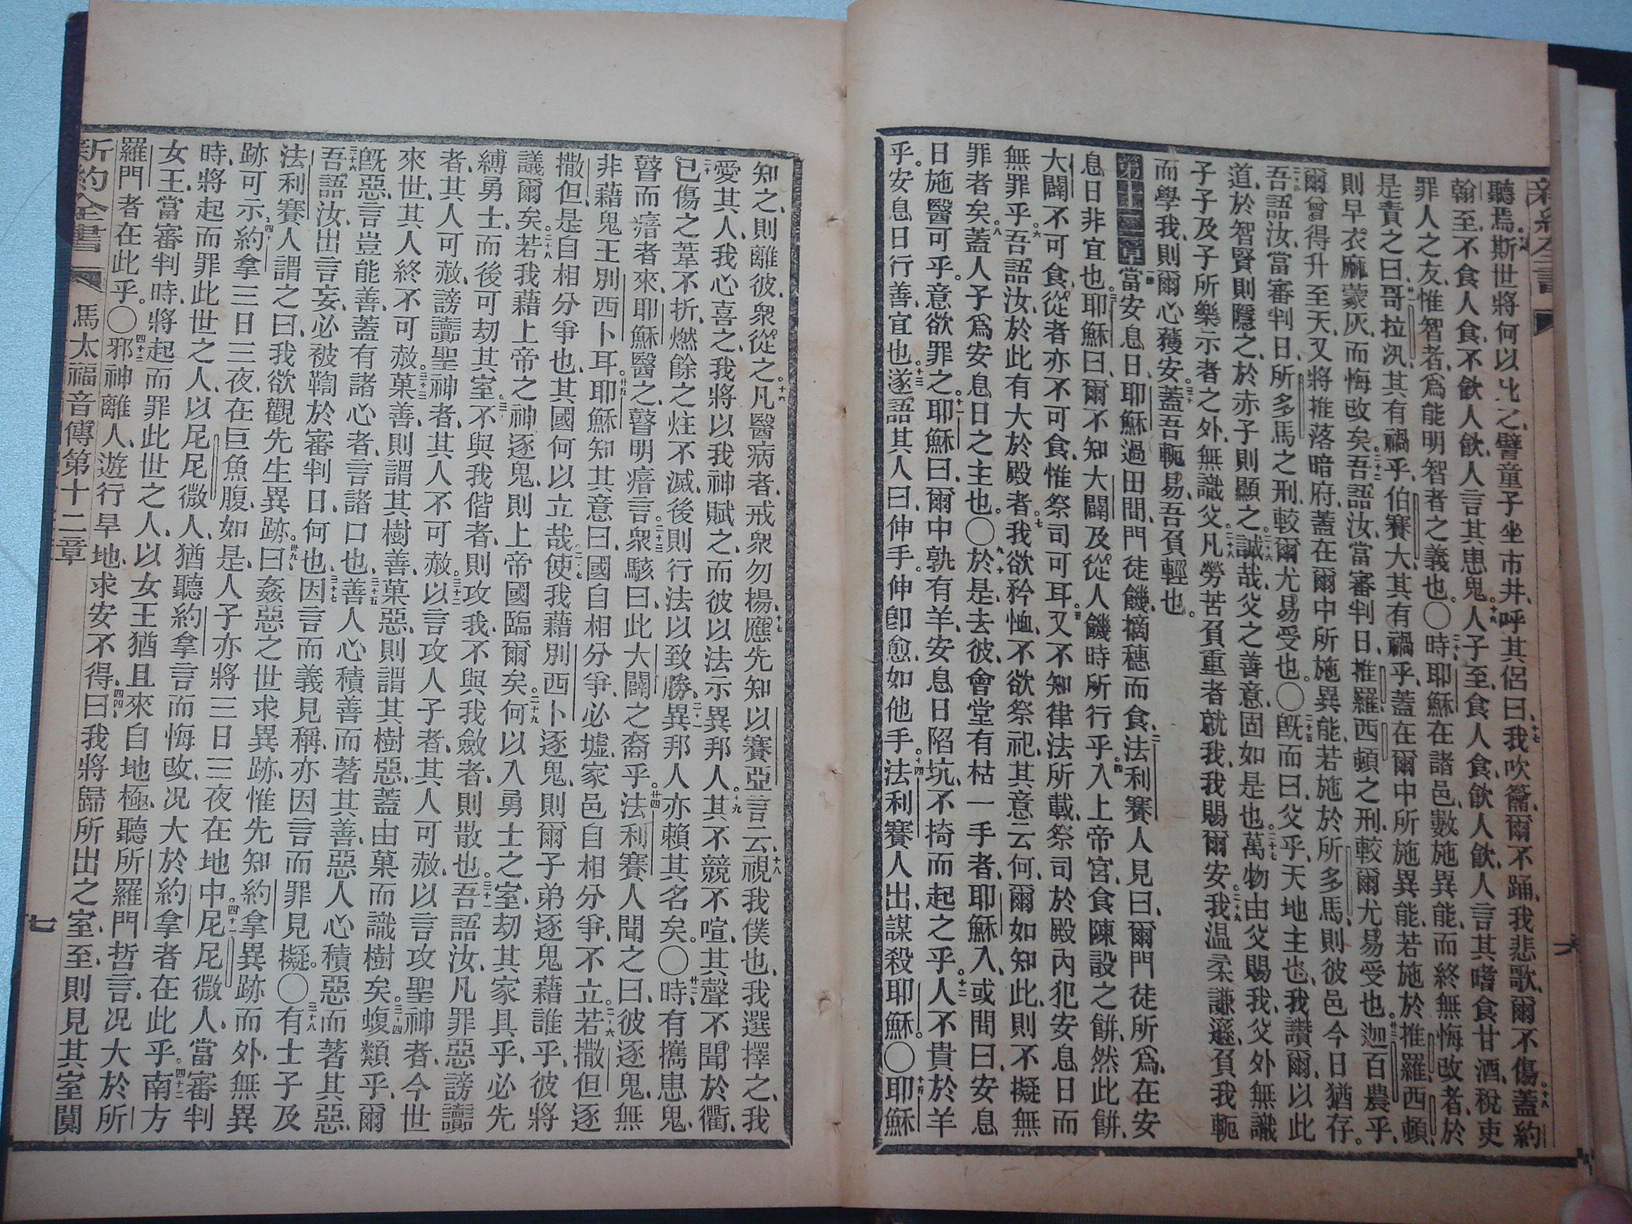 聽焉斯世將何以比之譬童子坐市井呼其侶曰我吹籥爾不踊我悲歌爾不傷蓋約
翰至不食人食不飲人飲人言其患鬼人子至食人食飲人飲人言其嗜食甘酒稅吏
罪人之友惟智者爲能明智者之義也〇時耶穌在諸邑數施異能而終無悔改者於
是責之曰哥拉汛其有禍乎伯賽大其有禍乎蓋在爾中所施異能若施於推羅西頓
則早衣麻蒙灰而悔改矣吾語汝當審判日推羅西頓之刑較爾尤易受也迦百農乎
爾曾得升至天又將推落暗府蓋在爾中所施異能若施於所多馬則彼邑今日猶存
吾語汝當審判日所多馬之刑較爾尤易受也〇旣而曰父乎天地主也我讚爾以此
道於智賢則隱之於赤子則顯之誠哉父之善意固如是也萬物由父賜我父外無識
子子及子所樂示者之外無識父凡勞苦負重者就我我賜爾安我温柔謙遜負我軛
而學我則爾心獲安蓋吾軛易吾負輕也
第十二章當安息日耶穌過田間門徒饑摘穗而食法利賽人見曰爾門徒所爲在安
息日非宜也耶穌曰爾不知大闢及從人饑時所行乎入上帝宮食陳設之餅然此餅
大闢不可食從者亦不可食惟祭司可耳又不知律法所載祭司於殿內犯安息日而
無罪乎吾語汝於此有大於殿者我欲矜恤不欲祭祀其意云何爾如知此則不擬無
罪者矣蓋人子爲安息日之主也〇於是去彼會堂有枯一手者耶穌入或問曰安息
日施醫可乎意欲罪之耶穌曰爾中孰有羊安息日陷坑不掎而起之乎人不貴於羊
乎安息日行善宜也遂語其人曰伸手伸卽愈如他手法利賽人出謀殺耶穌〇耶穌
知之則離彼衆從之凡醫病者戒衆勿揚應先知以賽亞言云視我僕也我選擇之我
愛其人我心喜之我將以我神賦之而彼以法示異邦人其不競不喧其聲不聞於衢
已傷之葦不折燃餘之炷不滅後則行法以致勝異邦人亦賴其名矣〇時有攜患鬼
瞽而瘖者來耶穌醫之瞽明瘖言衆駭曰此大闢之裔乎法利賽人聞之曰彼逐鬼無
非藉鬼王別西卜耳耶穌知其意曰國自相分爭必墟家邑自相分爭不立若撒但逐
撒但是自相分爭也其國何以立哉使我藉別西卜逐鬼則爾子弟逐鬼藉誰乎彼將
議爾矣若我藉上帝之神逐鬼則上帝國臨爾矣何以入勇士之室劫其家具乎必先
縛勇士而後可劫其室不與我偕者則攻我不與我斂者則散也吾語汝凡罪惡謗讟
者其人可赦謗讟聖神者其人不可赦以言攻人子者其人可赦以言攻聖神者今世
來世其人終不可赦菓善則謂其樹善菓惡則謂其樹惡蓋由菓而識樹矣蝮類乎爾
旣惡言豈能善蓋有諸心者言諸口也善人心積善而著其善惡人心積惡而著其惡
吾語汝出言妄必被鞫於審判日何也因言而義見稱亦因言而罪見擬〇有士子及
法利賽人謂之曰我欲觀先生異跡曰姦惡之世求異跡惟先知約拿異跡而外無異
跡可示約拿三日三夜在巨魚腹如是人子亦將三日三夜在地中尼尼微人當審判
時將起而罪此世之人以尼尼微人猶聽約拿言而悔改况大於約拿者在此乎南方
女王當審判時將起而罪此世之人以女王猶且來自地極聽所羅門哲言况大於所
羅門者在此乎〇邪神離人遊行旱地求安不得曰我將歸所出之室至則見其室闃
新約全書 馬太福音傳第十二章 七